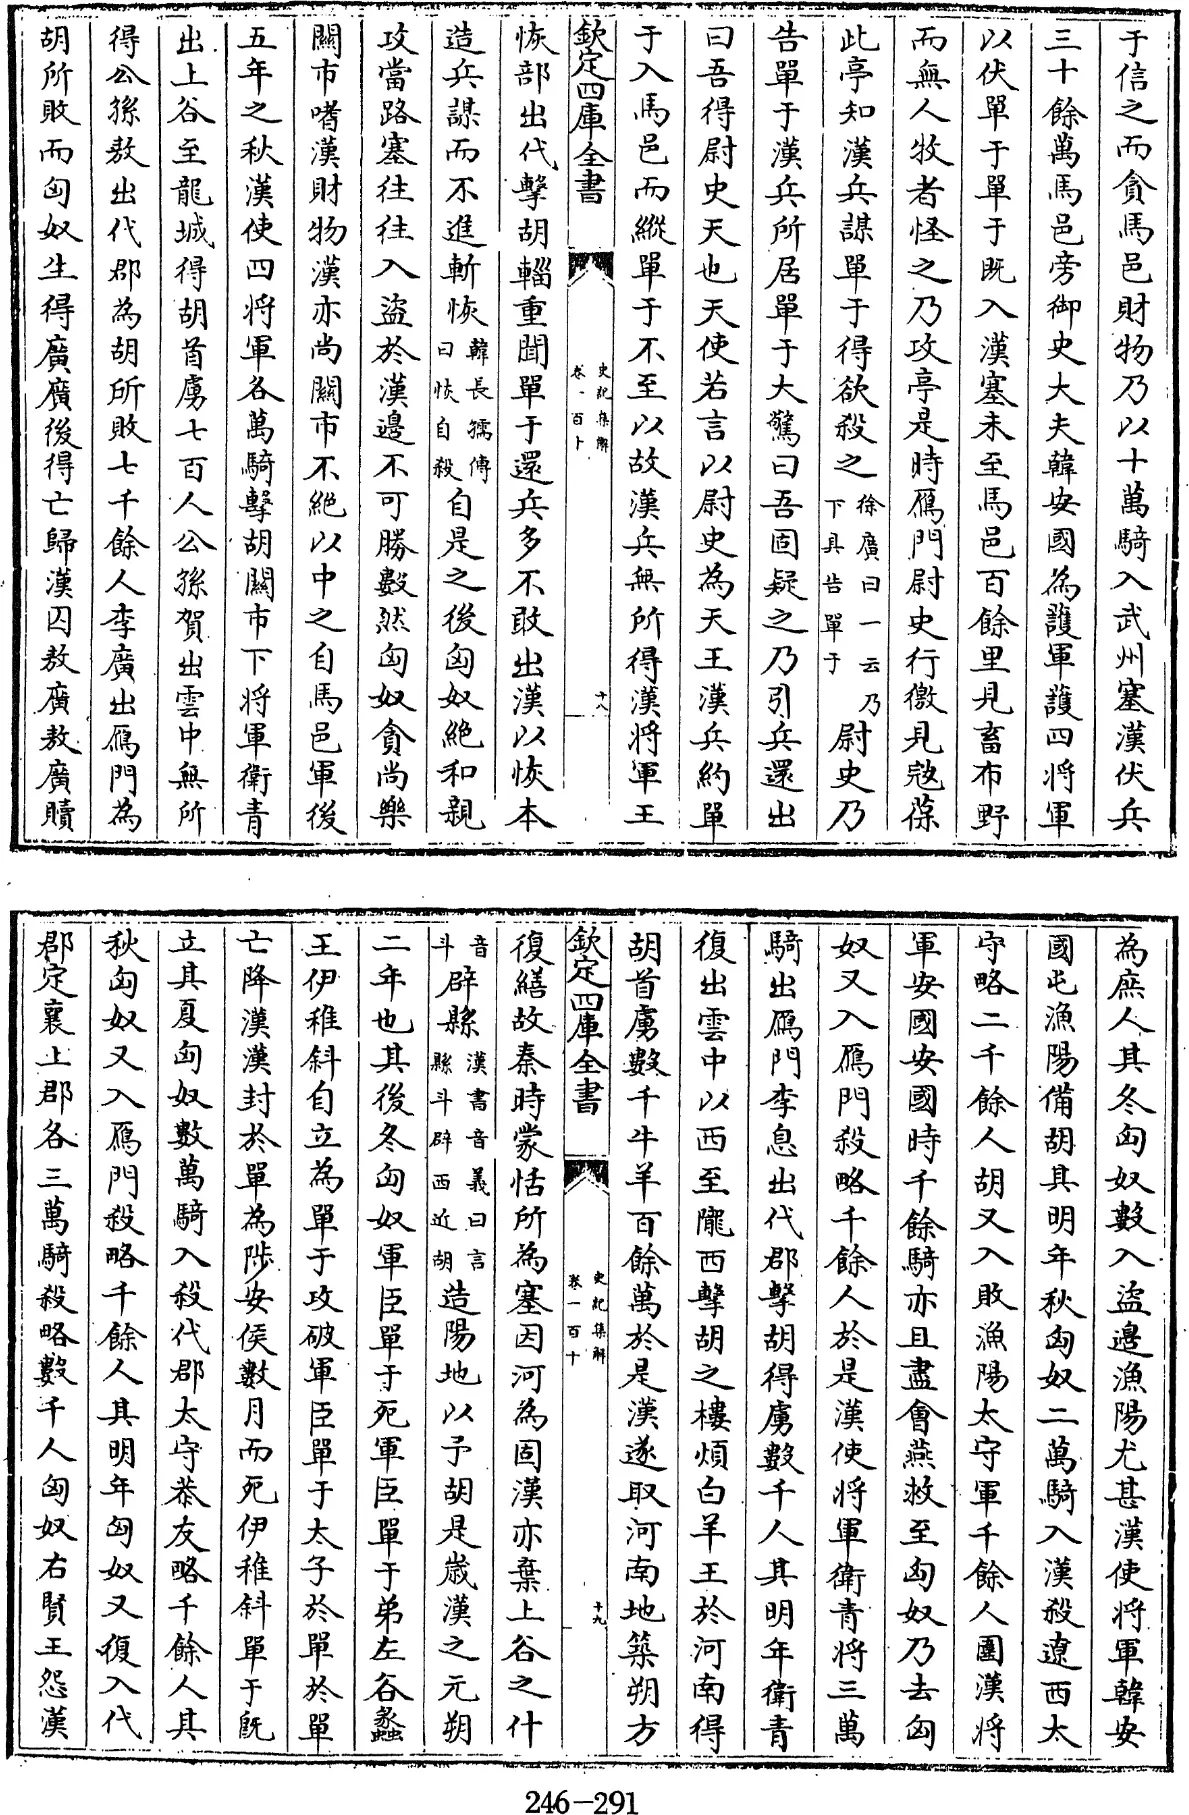 于信之而貪馬邑財物乃以十萬騎入武州塞漢伏兵
三十餘萬馬邑旁御史大夫韓安國為護軍護四將軍
以伏單于單于既入漢塞未至馬邑百餘里見畜布野
而無人牧者怪之乃攻亭是時鴈門尉史行徼見寇葆
此亭知漢兵謀單于得欲殺之徐廣曰一云乃下具告單于尉史乃
告單于漢兵所居單于大驚曰吾固疑之乃引兵還出
曰吾得尉史天也天使若言以尉史為天王漢兵約單
于入馬邑而縱單于不至以故漢兵無所得漢將軍王
欽定四庫全書
史記集解
卷一百十
十八
恢部出代擊胡輜重聞單于還兵多不敢出漢以恢本
造兵謀而不進斬恢韓長孺傳曰恢自殺自是之後匈奴絶和親
攻當路塞往往入盜於漢邊不可勝數然匈奴貪尚樂
關市嗜漢財物漢亦尚關市不絶以中之自馬邑軍後
五年之秋漢使四將軍各萬騎擊胡關市下將軍衛青
出上谷至龍城得胡首虜七百人公孫賀出雲中無所
得公孫敖出代郡為胡所敗七千餘人李廣出鴈門為
胡所敗而匈奴生得廣廣後得亡歸漢囚敖廣敖廣贖
為庶人其冬匈奴數入盜邊漁陽尤甚漢使將軍韓安
國屯漁陽備胡其明年秋匈奴二萬騎入漢殺遼西太
守略二千餘人胡又入敗漁陽太守軍千餘人圍漢將
軍安國安國時千餘騎亦且盡會燕救至匈奴乃去匈
奴又入鴈門殺略千餘人於是漢使將軍衛青將三萬
騎出鴈門李息出代郡擊胡得虜數千人其明年衛青
復出雲中以西至隴西擊胡之樓煩白羊王於河南得
胡首虜數千牛羊百餘萬於是漢遂取河南地築朔方
欽定四庫全書
史記集解
卷一百十
十九
復繕故秦時蒙恬所為塞因河為固漢亦棄上谷之什
音斗辟縣漢書音義曰言縣斗辟西近胡造陽地以予胡是歲漢之元朔
二年也其後冬匈奴軍臣單于死軍臣單于弟左谷蠡
王伊稚斜自立為單于攻破軍臣單于太子於單於單
亡降漢漢封於單為陟安侯數月而死伊稚斜單于既
立其夏匈奴數萬騎入殺代郡太守恭友略千餘人其
秋匈奴又入鴈門殺略千餘人其明年匈奴又復入代
郡定襄上郡各三萬騎殺略數千人匈奴右賢王怨漢
246-291